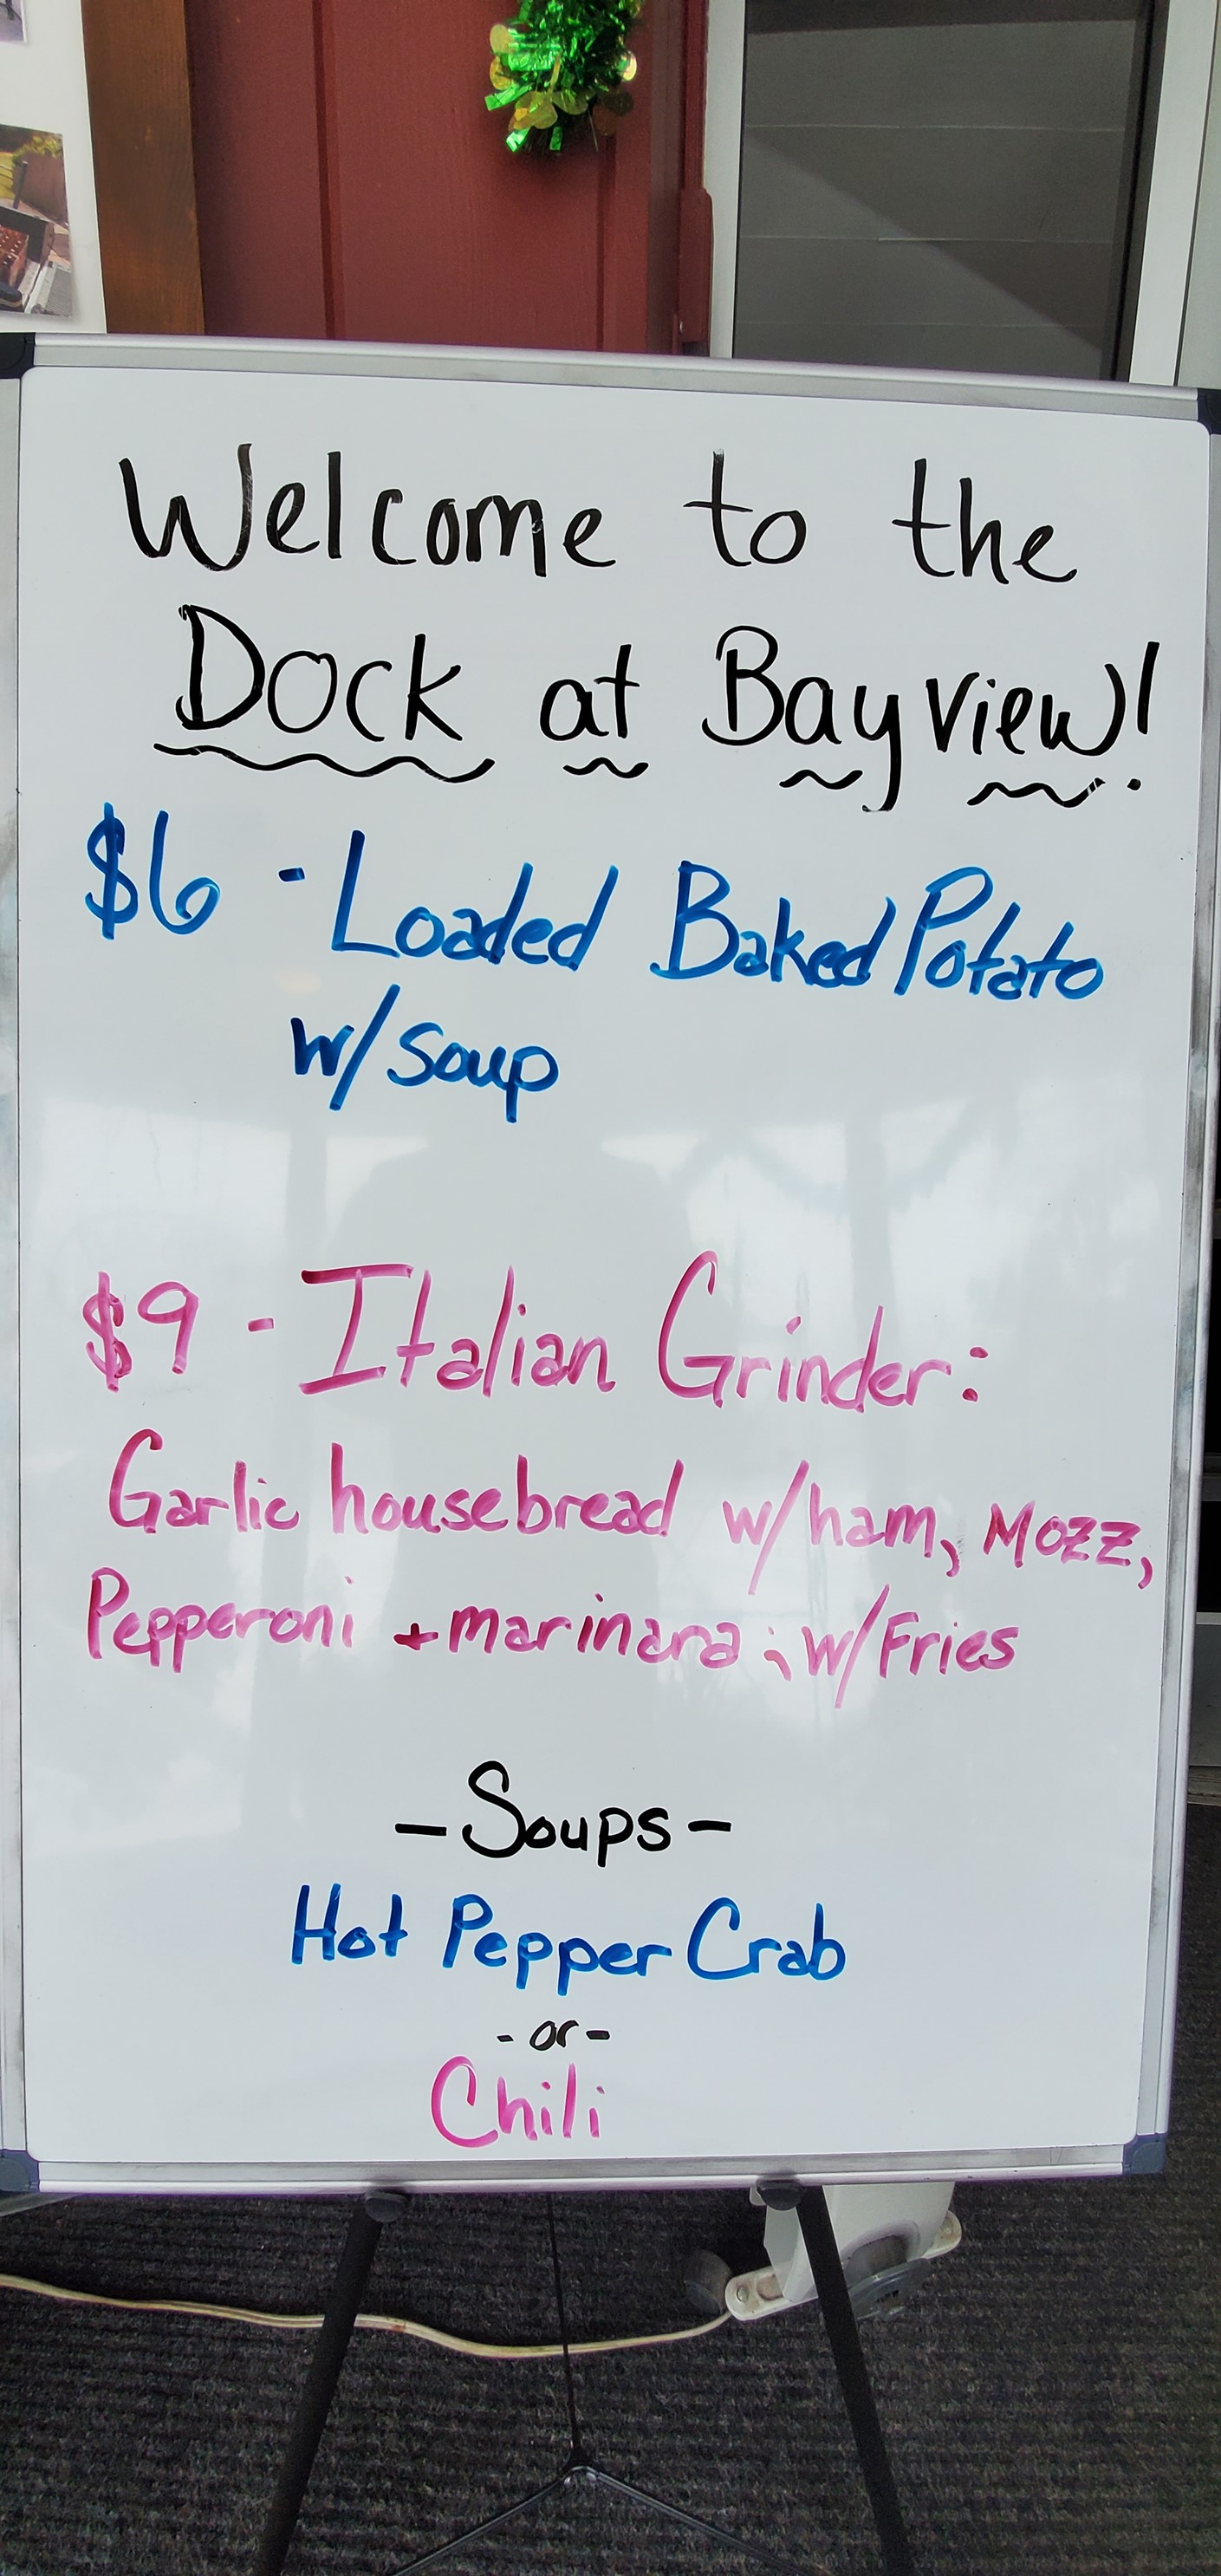 Welcome to the
Dock at Bayview!
$6 - Loaded Baked Potato
w/ Soup
$9 - Italian Grinder:
Garlic housebread w/ham, Mozz,
Pepperoni + marinara; w/Fries
- Soups -
Hot Pepper Crab
- or -
Chili